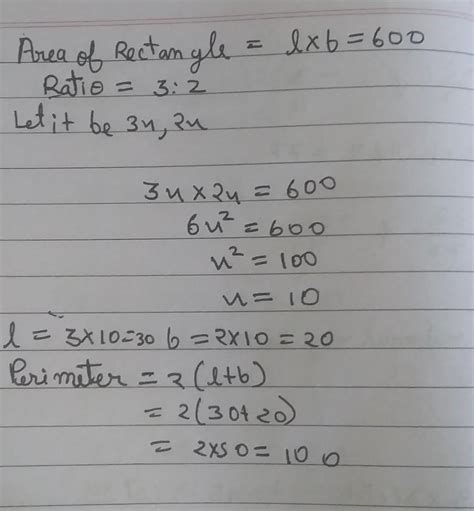 Area of Rectangle = l×b = 600
Ratio = 3:2
Let it be 3u, 2u
3u × 2u = 600
6u² = 600
u² = 100
u = 10
l = 3×10=30 b = 2×10 = 20
Perimeter = 2(l+b)
= 2(30+20)
= 2×50 = 100